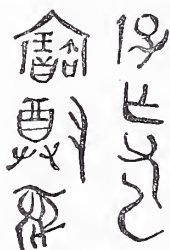 乍父乙
寶尊彝